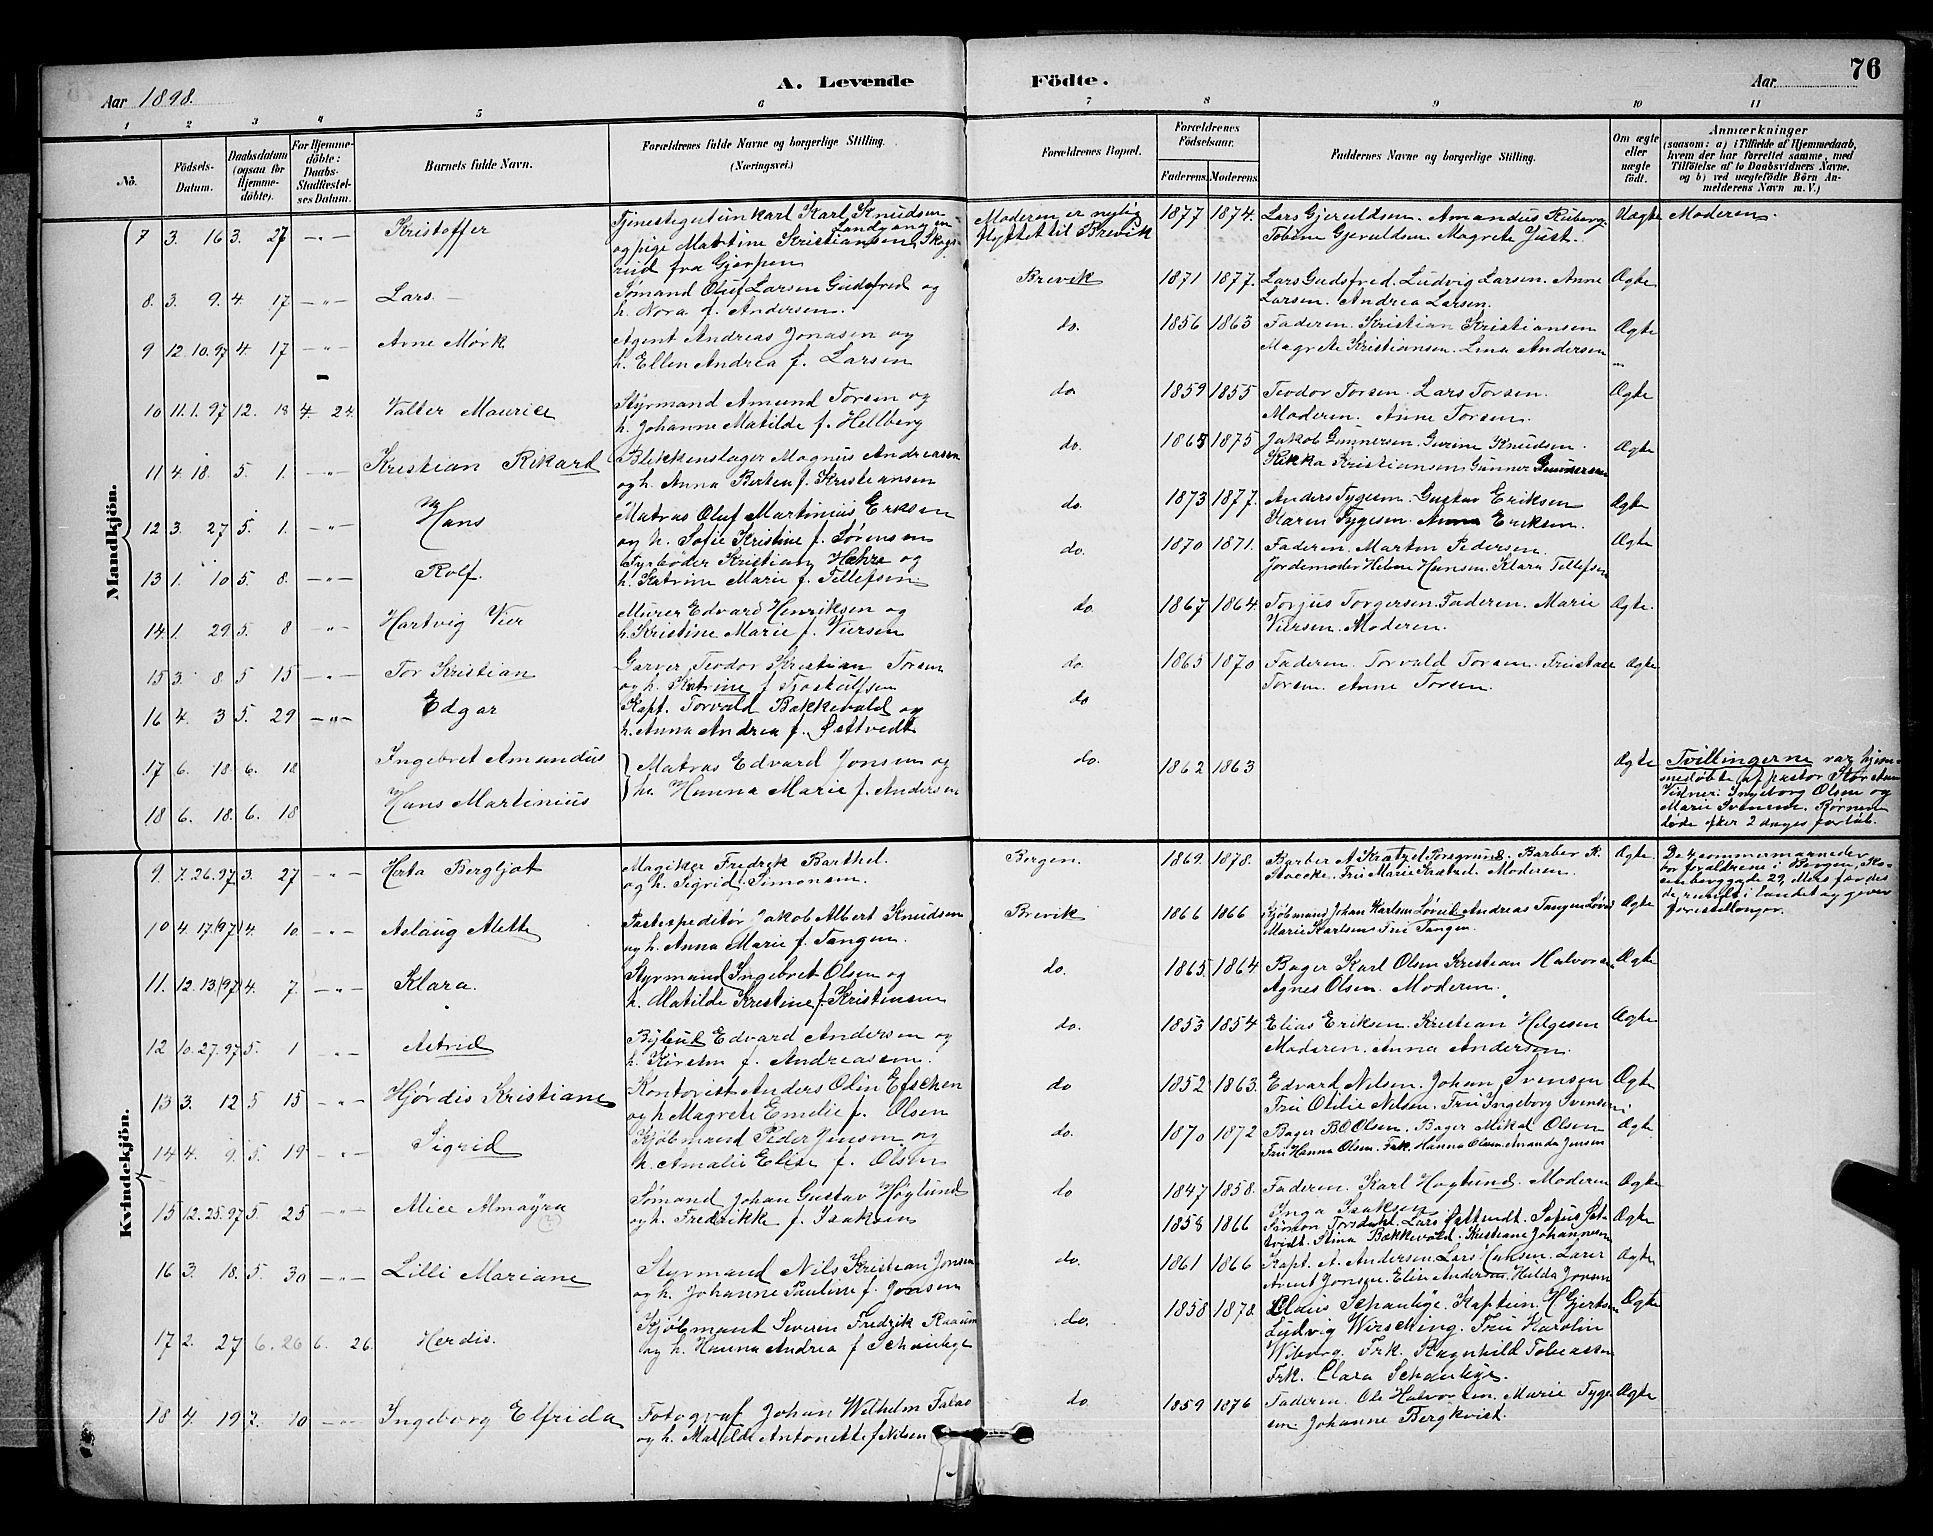 76
Aar 1898.
A. Levende Födte.
Aar
1 2 3 4 5 6 7 8 9 10 11
No.
Födsels-Datum.
Daabsdatum (ogsaa for Hjemmedöbte).
For Hjemmedöbte: Daabs-Stadfæstelses Datum.
Barnets fulde Navn.
Forældrenes fulde Navne og borgerlige Stilling. (Næringsvei.)
Forældrenes Bopæl.
Forældrenes Födselsaar.
Faderens. Moderens.
Faddernes Navne og borgerlige Stilling.
Om ægte eller uægte födt.
Anmærkninger (saasom: a) i Tilfælde af Hjemmedaab, hvem der har forrettet samme, med Tilföielse af to Daabsvidners Navne, og b) ved uægtefödte Börn Anmelderens Navn m. V.)
Mandkjön.
7 3. 16 3. 27 —"— Kristoffer Tjenestegut unkarl Karl Knudsen Landgangen og pige Martine Kristiansen Skogsrud fra Gjerpen Moderen er nylig flyttet til Brevik 1877 1874. Lars Gjeruldsen. Amandus Ruberg. Tobine Gjeruldsen Magrete Just. Uægte Moderen.
8. 3. 9. 4. 17 —"— Lars. Sømand Oluf Larsen Gudsfred og h. Nora f. Andersen. Brevik 1871 1877. Lars Gudsfred. Ludvig Larsen. Anne Larsen. Andrea Larsen. Ægte
9 12. 10. 97 4. 17 —"— Arne Mørk Agent Andreas Jonasen og h. Ellen Andrea f. Larsen do. 1856 1863 Faderen. Kristian Kristiansen Magrete Kristiansen. Lina Andersen Ægte
10 11. 1. 97 12. 18 4. 24. Valter Maurice Styrmand Amund Torsen og h. Johanne Matilde f. Hellberg do. 1859 1855 Teodor Torsen. Lars Torsen. Moderen. Anne Torsen. Ægte
11 4. 18. 5. 1. —"— Kristian Rikard Blikkenslager Magnus Andreasen og h. Anna Bertea f. Kristiansen do. 1865 1875 Jakob Gunnersen. Gurine Knudsen. Rikka Kristiansen Gunner Gunnersen Ægte
12 3. 27 5. 1. —"— Hans Matros Oluf Martinius Eriksen og h. Sofie Kristine f. Sørensen do. 1873 1877. Anders Tygesen. Gustav Eriksen Karen Tygesen. Anna Eriksen. Ægte
13 1. 10 5. 8. —"— Rolf. Fyrbøder Kristian Hehre og h. Katrine Marie f. Tellefsen. do. 1870 1871. Faderen. Marton Pedersen. Jordemoder Helene Hansen. Klara Tellefsen Ægte
14. 1. 29 5. 8 —"— Hartvig Vier Murer Edvard Henriksen og h. Kristine Marie f. Viersen do. 1867 1864. Torjus Torgersen. Faderen. Marie Viersen. Moderen. Ægte.
15 3. 8. 5 15 —"— Tor Kristian Garver Teodor Kristian Torsen og h. Katrine f. Tjostulfsen do. 1865 1870 Faderen. Torvald Torsen. Torsen. Anne Torsen. Ægte
16 4. 3 5. 29 —"— Edgar Kapt. Torvald Bakkevold og h. Anna Andrea f. Ørstvedt do
17 6. 18. 6. 18 Ingebret Amandus
18 6. 18. 6. 18 Hans Martinius
Matros Edvard Jonsen og h. Hanna Marie f. Andersen do. 1862 1863 Ægte Tvillingerne var hjemmedøbte af pastor Vidner: Ingeborg Olsen og Marie Svensen. Børnene døde efter 2 dages forløb.
Kvindekjön.
9. 7. 26. 97 3. 27 —"— Herta Bergljot Magiker Fredrik Barthel. og h. Sigrid Simonsen. Bergen. 1869. 1878. Barber A. Kratzel Porsgrund. Barber R. Fru Marie Kratzel. Moderen. Ægte De 4 sommermaaneder bor forældrene i Bergen, 29, Mens færdes de rundt i landet og giver forestillinger.
10 4. 17. (97) 4. 10. —"— Aslaug Alette Postexpeditør Jakob Albert Knudsen og h. Anna Marie f. Tangen. Brevik 1866 1866 Kjøbmand Johan Karlsen Løvik Andreas Tangen Marie Karlsens Fru Tangen. Ægte
11. 12. 13 (97) 4. 7. —"— Klara. Styrmand Ingebret Olsen og h. Matilde Kristine f. Kristensen do. 1865. 1864 Bager Karl Olsen Kristian Halvorsen Agnes Olsen. Moderen. Ægte
12 10. 27. 97 5. 1 —"— Astrid Bybud Edvard Andersen og h. Kirsten f. Andreassen. do. 1853 1854 Elias Eriksen. Kristian Helgesen Moderen. Anna Andersen. Ægte
13 3. 12 5 15 —"— Hjørdis Kristiane Kontorist Anders Odin Efschen og h. Magrete Emelie f. Olsen do 1852 1863. Edvard Nilsen. Johan Svensen Fru Otilie Nilsen. Fru Ingeborg Svensen. Ægte
14 4. 9. 5. 19 —"— Sigrid Kjøbmand Peder Jensen og h. Amalie Elise f. Olsen do. 1870 1872 Bager B.O. Olsen. Bager Mikal Olsen Fru Hanna Olsen. Frk. Hanna Olsen. Amanda Jensen Ægte.
15 12. 25. 97 5. 25 —"— Alice Almayra (?) Sømand Johan Gustav Høglund og h. Fredrikke f. Isaksen do 1847 1858. Faderen. Karl Høglund. Moderen Inga Isaksen Ægte
1858 1866 Simon Torsdahl. Lars Ørstvedt. Sofus Ørstvedt. Stina Bakkevold. Kristiane Johannesen Ægte
16 3. 18. 5. 30 —"— Lilli Mariane Styrmand Nils Kristian Jonsen og h. Johanne Pauline f. Jonsen do. 1861 1866 Kapt. A. Andersen Lars Hansen. Jonsen. Elise Andersen Hilda Jonsen Ægte
17 2. 27 6. 26 6. 26. Herdis. Kjøbmand Severin Fredrik Raaum og h. Hanna Andrea f. Schanligt do. 1858 1878. Claus Schanlige. Kaptein H. Gjertsen Ludvig Wirsching. Fru Karolin Wiborg. Frk. Ragnhild Tobiassen Frk. Clara Schanlige. Ægte
18 4. 19 7. 10 —"— Ingeborg Elfrida Fotograf Johan Wilhelm Falao og h. Matilde Antonette f. Nilsen do. 1859 1876 Faderen. Ole Halvorsen. Marie Tygesen. Johanne Bergkvist. Ægte